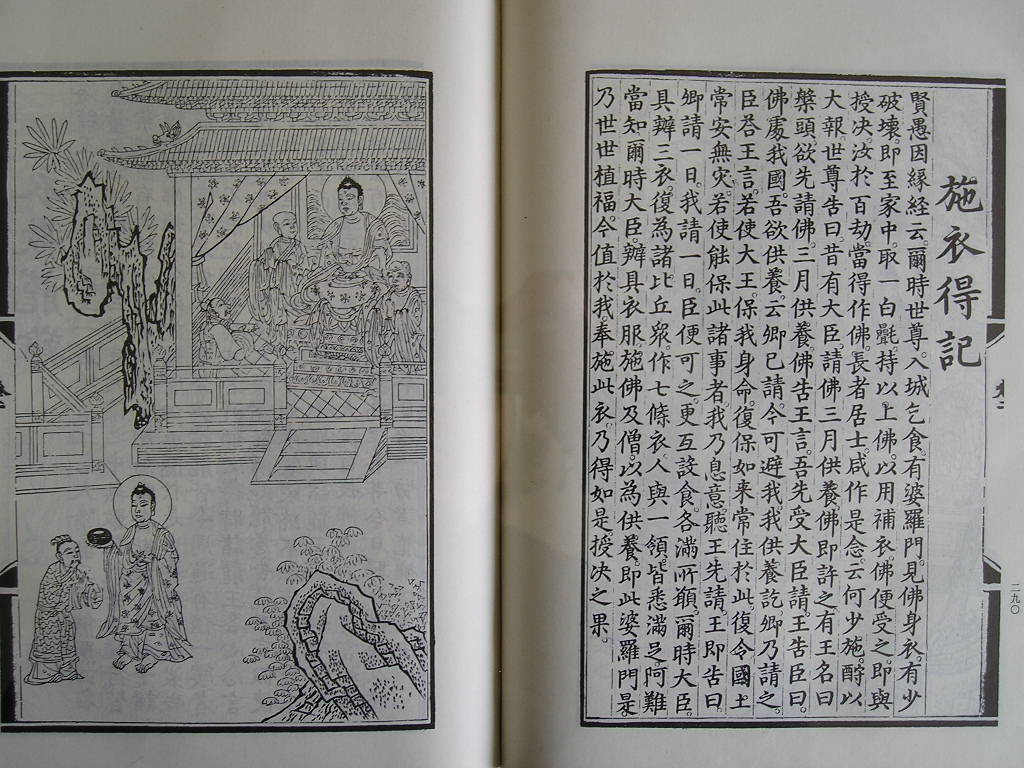 施衣得記
賢愚因緣經云。爾時世尊。入城乞食。有婆羅門。見佛身衣。有少
破壞。即至家中。取一白㲲。持以上佛。以用補衣。佛便受之。即與
授决。汝於百劫。當得作佛。長者居士。咸作是念。云何少施。酧以
大報。世尊告曰。昔有大臣。請佛三月供養。佛即許之。有王名曰
槃頭。欲先請佛。三月供養。佛告王言。吾先受大臣請。王告臣曰。
佛處我國。吾欲供養。云卿已請。今可避我。我供養訖。卿乃請之。
臣荅王言。若使大王。保我身命。復保如來常住於此。復令國土
常安無灾。若使能保此諸事者。我乃息意。聽王先請。王即告曰。
卿請一日。我請一日。臣便可之。更互設食。各滿所願。爾時大臣。
具辦三衣。復為諸比丘衆。作七條衣。人與一領。皆悉滿足。阿難
當知。爾時大臣。辦具衣服。施佛及僧。以為供養。即此婆羅門是。
乃世世植福。今值於我。奉施此衣。乃得如是授决之果。
二九〇